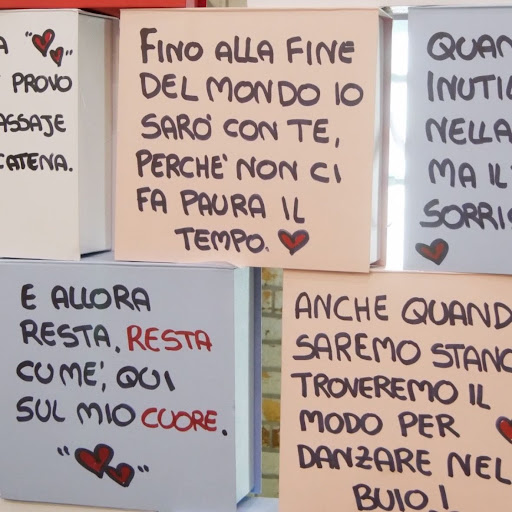 A "
PROVO
ASSAJE
CATENA.
FINO ALLA FINE
DEL MONDO IO
SARO' CON TE,
PERCHE' NON CI
FA PAURA IL
TEMPO.
NELLA
MA IL
E ALLORA
RESTA. RESTA
CU ME', QUI
SUL MIO CUORE.
" "
ANCHE
SAREMO
TROVEREMO IL
MODO PER
DANZARE NEL
BUIO!